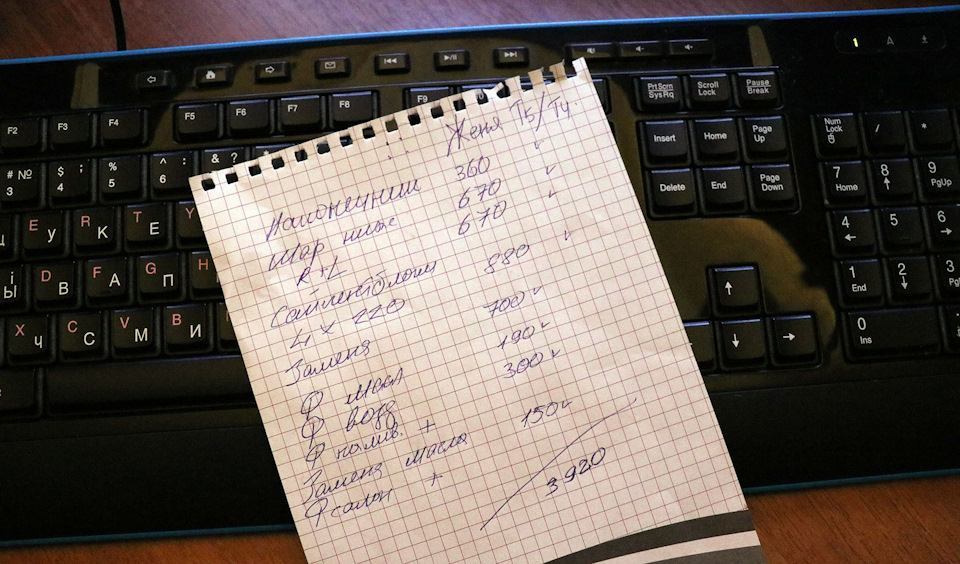 Женя Т5/Т4
Наконечники 360
Шар ниж 670
R+L 670
Сайлентблоки
4 x 220 880
Замена 700
Ф масл 190
Ф возд 300
Ф +
Замена масла 150
Ф салон +
3920
F2 F3 F4 F5 F6 F7 F8 F9
PrtScrn SysRq Scroll Lock Pause Break
# № 3 $ ; 4 % 5 ^ : 6 & ? 7 *
Insert Home Page Up
Num Lock / *
E У R К T Е Y
Delete End Page Down
7 Home 8 9 PgUp
І Ы D В F А G П H
4 5 6
X Ч C С V М B И
1 End 2 3
0 Ins
1 A